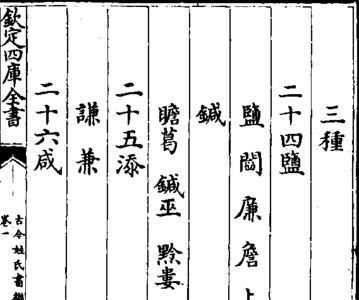 三種
二十四鹽
鹽閻廉詹上
鍼
瞻葛鍼巫黔婁
二十五添
謙兼
二十六咸
欽定四庫全書
古今姓氏書辯
卷一